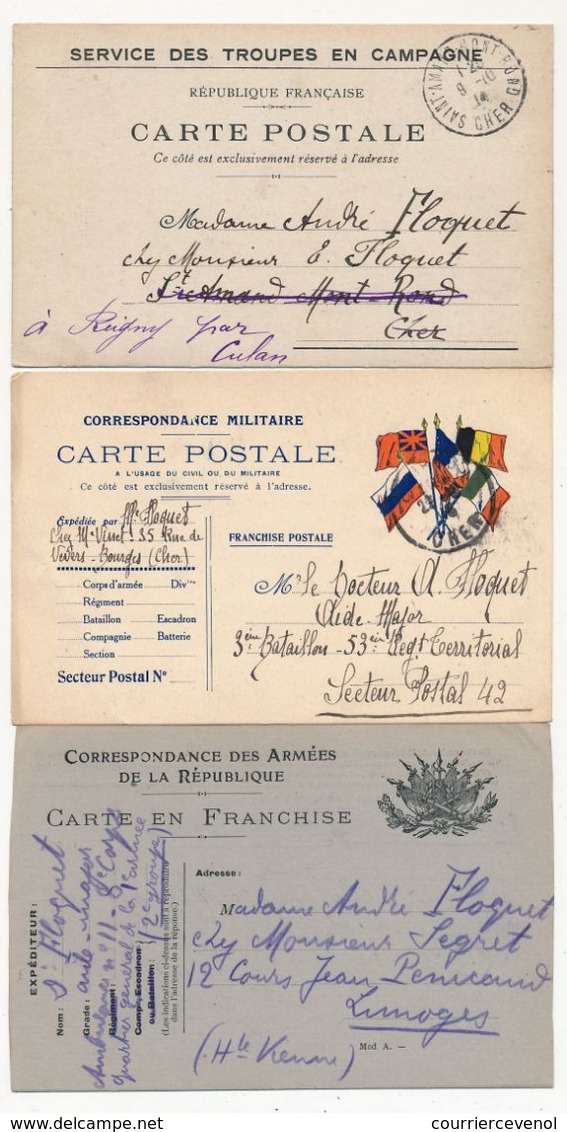 SERVICE DES TROUPES EN CAMPAGNE
RÉPUBLIQUE FRANÇAISE
CARTE POSTALE
Ce côté est exclusivement réservé à l'adresse
SAINT-AMAND-MONT-ROND
9 -10
14
CHER
Madame André Floquet
chez Monsieur E. Floquet
St Amand Mont-Rond
Cher
à Reigny par
Culan
CORRESPONDANCE MILITAIRE
CARTE POSTALE
A L'USAGE DU CIVIL OU DU MILITAIRE
Ce côté est exclusivement réservé à l'adresse.
Expédiée par Me Floquet
Chez Me Vinet - 35 Rue de
Nevers - Bourges (Cher)
Corps d'armée Divon
Régiment
Bataillon Escadron
Compagnie Batterie
Section
Secteur Postal No
FRANCHISE POSTALE
CHER
Mr le Docteur A. Floquet
Aide-Major
3ème Bataillon - 53ème Regt Territorial
Secteur Postal 42
CORRESPONDANCE DES ARMÉES
DE LA RÉPUBLIQUE
CARTE EN FRANCHISE
EXPÉDITEUR:
Nom: Dr Floquet
Grade: aide-major
Régiment: Ambulance no 11 - 8e Corps
quartier général de la 1e armée
Comp., Escadron
ou Bataillon: (2e groupe)
(Les indications ci-dessus sont à reproduire
dans l'adresse de la réponse.)
Adresse:
Madame André Floquet
chez Monsieur Segret
12 Cours Jean Penicaud
Limoges
(Hte Vienne)
Mod A. —
courriercevenol.com